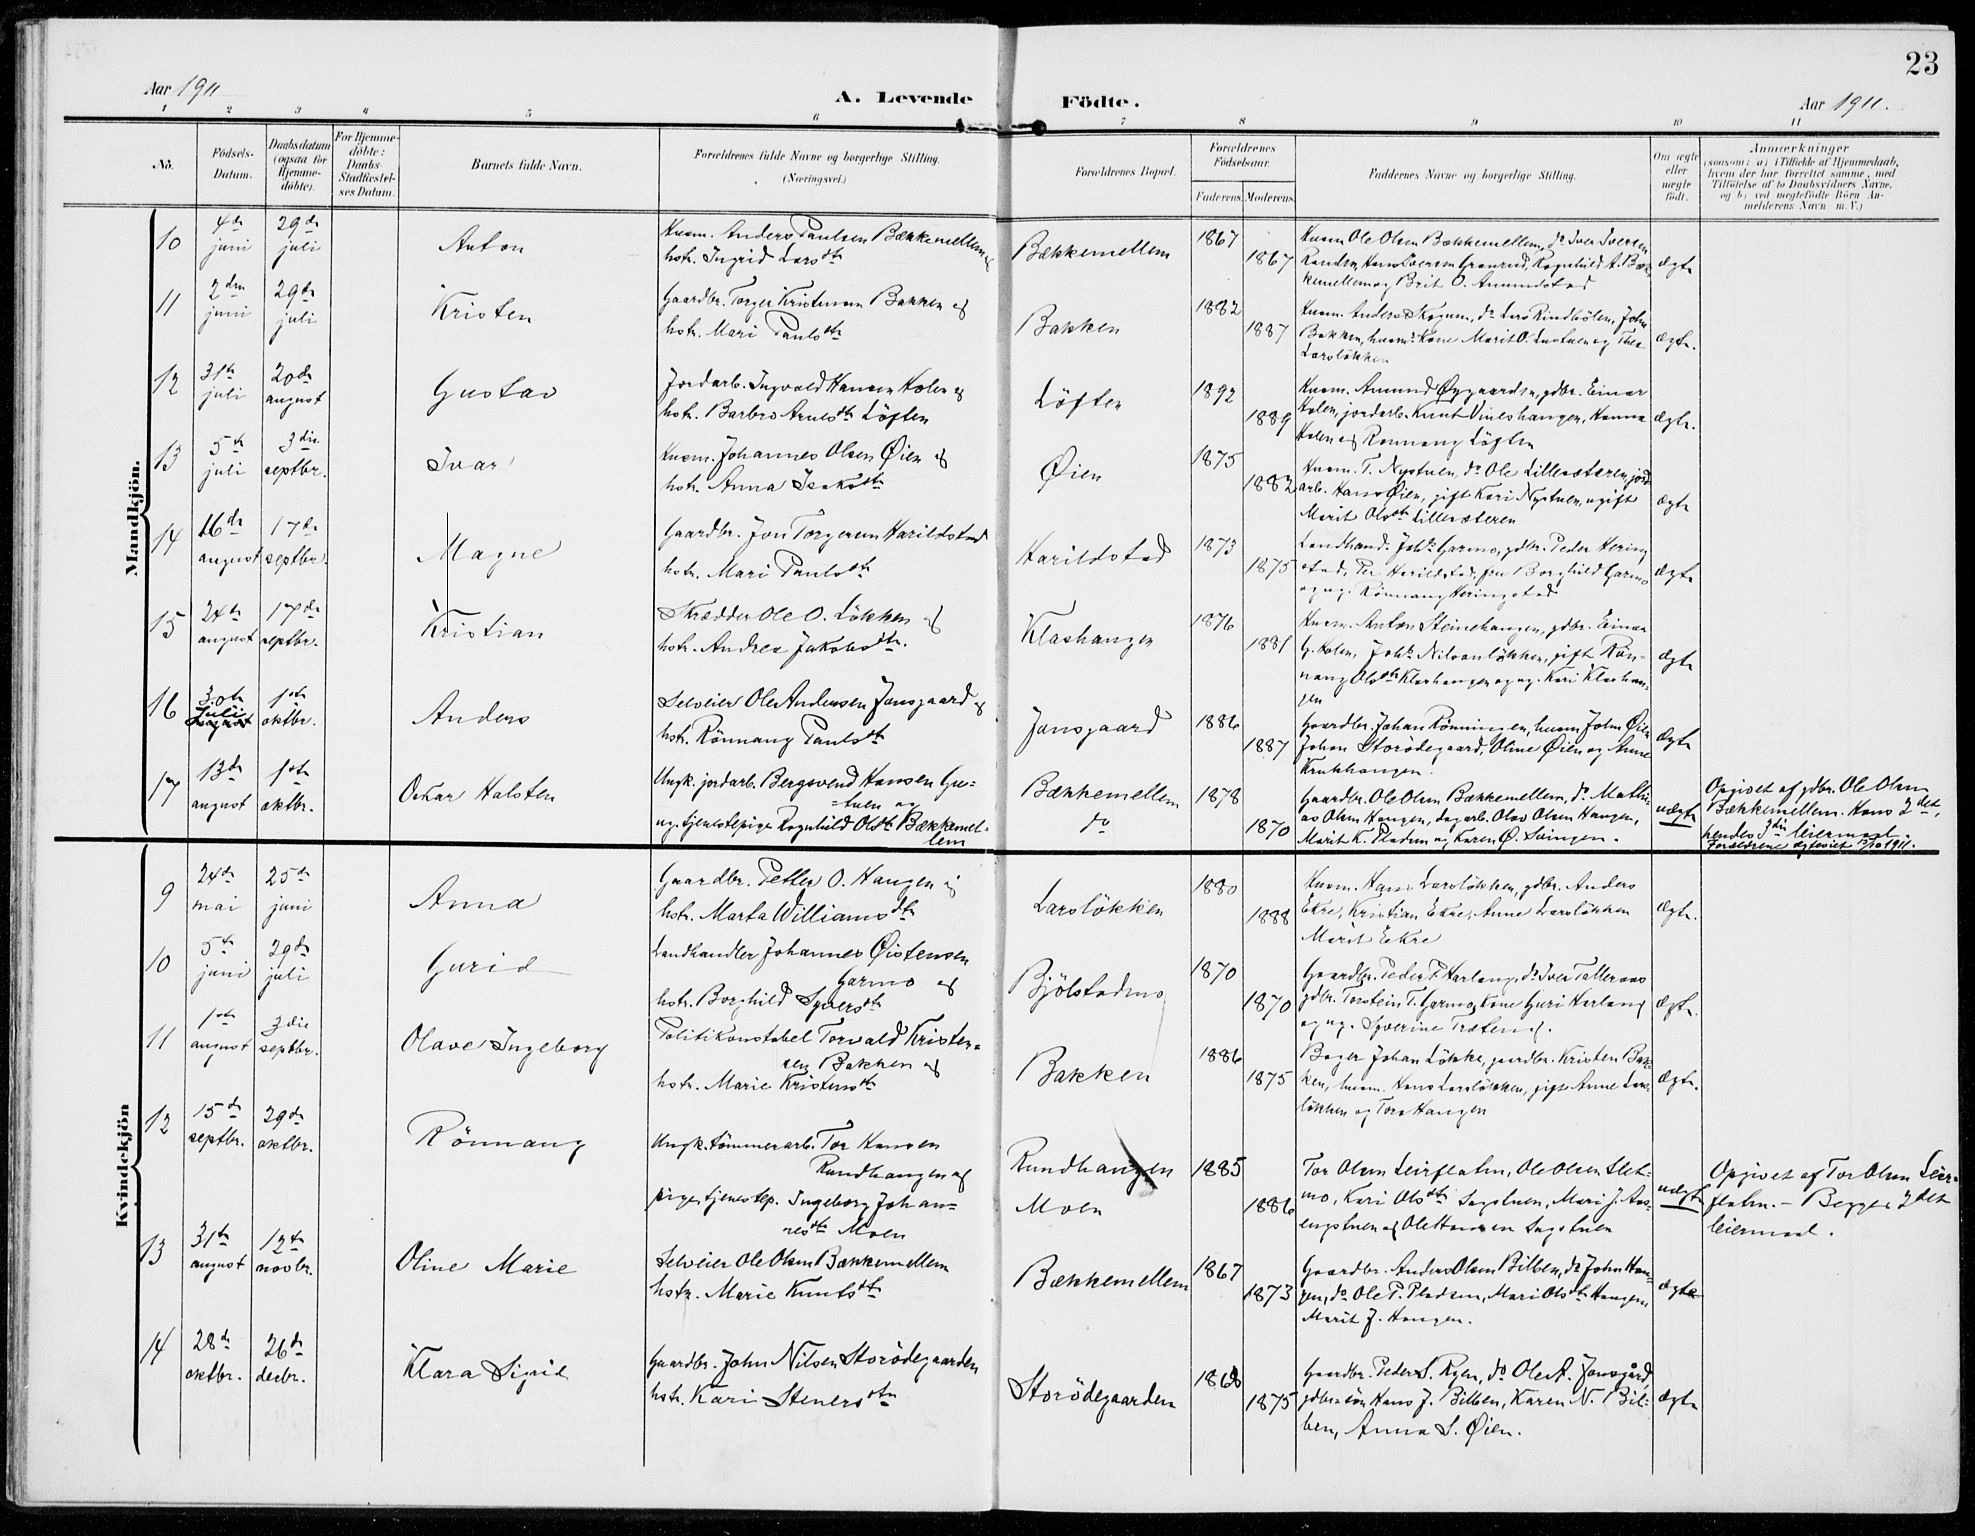 23
Aar 1911
A. Levende Födte.
Aar 1911.
1 2 3 4 5 6 7 8 9 10 11
No.
Födsels-
Datum.
Daabsdatum
(ogsaa for
Hjemme-
döbte).
For Hjemme-
döbte:
Daabs-
Stadfæstel-
ses Datum.
Barnets fulde Navn.
Forældrenes fulde Navne og borgerlige Stilling.
(Næringsvei.)
Forældrenes Bopæl.
Forældrenes
Födselsaar.
Faderens.
Moderens.
Faddernes Navne og borgerlige Stilling.
Om ægte
eller
uægte
födt.
Anmærkninger
(saasom: a) i Tilfælde af Hjemmedaab,
hvem der har forrettet samme, med
Tilföielse af to Daabsvidners Navne,
og b) ved uægtefödte Börn An-
melderens Navn m. V.)
Mandkjön.
10
4de juni
29de juli
Anton
Husm. Anders Paulsen Bækkemellem og
hstr. Ingrid Larsdtr
Bækkemellem
1867
1867
Husm Ole Olsen Bækkemellem, do Iver Iversen
Randen, Hans Iversen Granrud, Ragnhild A. Bæk-
kemellem og Brit O. Amundstad
ægte
11
2den juni
29de juli
Kristen
Gaardbr. Torger Kristensen Bakken og
hstr. Mari Paulsdtr
Bakken
1882
1887
Husm. Anders Skogum, do Lars Rindhölen, John
Bakken, husm. Kone Marit O. Lustuen og Thea
Larslökken
ægte.
12
31te juli
20de august
Gustav
Jordarb. Ingvald Hansen Holen og
hstr. Barbro Arnesdtr Löften
Löften
1892
1889
Husm. Amund Øygaarden, gdbr. Einar
Holen, jordarb. Knut Vineshangen, Hanna
Holen og Rönnaug Löften
ægte.
13
5te juli
3die septbr.
Ivar
Husm. Johannes Olsen Øien og
hstr. Anna Isaksdtr
Øien
1875
1882
Husm. T. Nystuen, do Ole Lillesæteren, jord-
arb. Hans Øien, gift Kari Nystuen, ugift
Marit Olsdtr Lillesæteren
ægte
14
16de august
17de septbr.
Magne
Gaardbr. Jon Torgersen Harildstad
hstr. Mari Paulsdtr
Harildstad
1873
1875
Landhand. Johs Garmo, gdbr. Peder Hering-
stad, Per Harildstad, fru Borghild Garmo
og ug. Rönnaug Heringstad
ægte
15
24de august
17de septbr.
Kristian
Skrædder Ole O. Lökken og
hstr. Andrea Jakobsdtr.
Klashangen
1876
1881
Husm. Anton Steinehangen, gdbr. Einar
G. Holen, Johs Nilsonlökken, gift Rön-
naug Olsdtr Klashangen og ug. Kari Klashan-
gen
ægte
16
30te
Juli
1ste oktbr.
Anders
Selveier Ole Andersen Jonsgaard og
hstr. Rönnaug Paulsdtr
Jonsgaard
1886
1887
Gaardbr. Johan Rönningen, husm John Øien
Johan Storödegaard, Oline Øien og Anne
Krukhaugen.
ægte
17
13de august
1ste oktbr.
Oskar Halsten
Ungk. jordarb. Bergsvend Hansen Gre-
=tuen og
ug. tjenestepige Ragnhild Olsdtr Bækkemel-
lem
Bækkemellem
do
1878
1870
Gaardbr. Ole Olsen Bækkemellem, do Mathi-
as Olsen Haugen, dagarb. Olav Olsen Haugen,
Marit K. Pladsen og Karen Ø. Svingen.
uægte
Opgivet af gdbr. Ole Olsen
Bækkemellem. Hans 2det,
hendes 3die leiermaal.
Forældrene ægteviet 1911.
Kvindekjön
9
24de mai
25de juni
Anna
Gaardbr. Petter O. Haugen og
hstr. Marta Williamsdtr
Larslökken
1880
1888
Husm. Hans Larslökken, gdbr. Anders
Ekre, Kristian Ekre, Anne Larslökken
Marit Ekre
ægte.
10
5te juni
29de juli
Gurid
Landhandler Johannes Øistensen
Garmo og
hstr. Borghild Syversdtr
Bjölstadmo
1870
1870
Gaardbr. Peder P. Harlang, do Iver Talleraas
gdbr. Torstein T. Garmo, Kone Guri Harlang
og ug. Syverine Træten
ægte.
11
1ste august
3die septbr.
Olave Ingeborg
Politikonstabel Torvald Kristen-
sen Bakken og
hstr. Marie Kristensdtr
Bakken
1886
1875
Bager Johan Lökke, gaardbr. Kristen Bak-
ken, husm. Hans Larslökken, gift Anne Lars-
lökken og Tora Haugen
ægte.
12
15de septbr.
29de oktbr.
Rönnaug
Ungk. tömmerarb. Tor Hansen
Rundhaugen og
pige, tjenestep. Ingeborg Johan-
nesdtr Moen
Rundhaugen
Moen
1885
1886
Tor Olsen Leirflaten, Ole Olsen Slet-
mo, Kari Olsdtr Sagstuen, Mari J. Aas-
engstuen og Ole Hansen Sagstuen
uægte
Opgivet af Tor Olsen Leir-
flaten. – Begges 2det
leiermaal.
13
31te august
12te novbr.
Oline Marie
Selveier Ole Olsen Bækkemellem
hstr. Marie Knutsdtr
Bækkemellem
1867
1873
Gaardbr. Anders Olsen Bilben, do John Hau-
gen, do Ole P. Pladsen, Mari Olsdtr Haugen
Marit J. Haugen.
ægte
14
28de oktbr.
26de decbr.
Klara Sigrid
Gaardbr. John Nilsen Storödegaarden
hstr. Kari Stenersdtr
Storödegaarden
1868
1875
Gaardbr. Peder S. Ryen, do Ole A. Jonsgård,
gdbr.sön Hans J. Bilben, Karen N. Bil-
ben, Anna S. Øien.
ægte